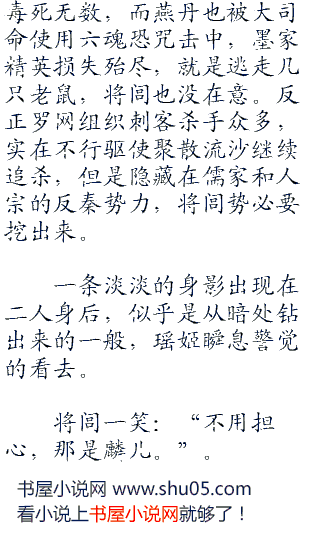 毒死无数，而燕丹也被大司
命使用六魂恐咒击中，墨家
精英损失殆尽，就是逃走几
只老鼠，将闾也没在意。反
正罗网组织刺客杀手众多，
实在不行驱使聚散流沙继续
追杀，但是隐藏在儒家和人
宗的反秦势力，将闾势必要
挖出来。
一条淡淡的身影出现在
二人身后，似乎是从暗处钻
出来的一般，瑶姬瞬息警觉
的看去。
将闾一笑：“不用担
心，那是麟儿。”。
书屋小说网 www.shu05.com
看小说上书屋小说网就够了！